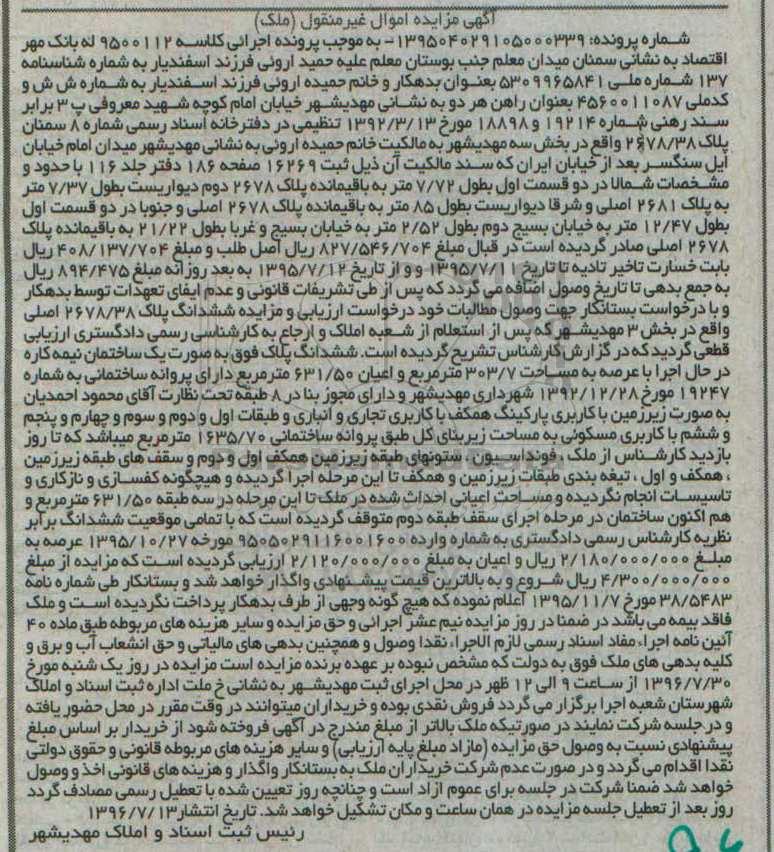 آگهی مزایده اموال غیرمنقول (ملک)
شماره پرونده: ۱۳۹۵۰۴۰۲۹۱۰۵۰۰۰۳۳۹- به موجب پرونده اجرائی کلاسه ۹۵۰۰۱۱۲ له بانک مهر
اقتصاد به نشانی سمنان میدان معلم جنب بوستان معلم علیه حمید ارونی فرزند اسفندیار به شماره شناسنامه
۱۳۷ شماره ملی ۵۳۰۹۹۶۵۸۴۱ بعنوان بدهکار و خانم حمیده ارونی فرزند اسفندیار به شماره ش ش و
کدملی ۴۵۶۰۰۱۱۰۸۷ بعنوان راهن هر دو به نشانی مهدیشهر خیابان امام کوچه شهید معروفی پ ۳ برابر
سند رهنی شماره ۱۹۲۱۴ و ۱۸۸۹۸ مورخ ۱۳۹۲/۳/۱۳ تنظیمی در دفترخانه اسناد رسمی شماره ۸ سمنان
پلاک ۲۶۷۸/۳۸ واقع در بخش سه مهدیشهر به مالکیت خانم حمیده ارونی به نشانی مهدیشهر میدان امام خیابان
ایل سنگسر بعد از خیابان ایران که سند مالکیت آن ذیل ثبت ۱۶۲۶۹ صفحه ۱۸۶ دفتر جلد ۱۱۶ با حدود و
مشخصات شمالا در دو قسمت اول بطول ۷/۷۲ متر به باقیمانده پلاک ۲۶۷۸ دوم دیواریست بطول ۷/۳۷ متر
به پلاک ۲۶۸۱ اصلی و شرقا دیواریست بطول ۸۵ متر به باقیمانده پلاک ۲۶۷۸ اصلی و جنوبا در دو قسمت اول
بطول ۱۲/۴۷ متر به خیابان بسیج دوم بطول ۲/۵۲ متر به خیابان بسیج و غربا بطول ۲۱/۲۲ به باقیمانده پلاک
۲۶۷۸ اصلی صادر گردیده است در قبال مبلغ ۸۲۷/۵۴۶/۷۰۴ ریال اصل طلب و مبلغ ۴۰۸/۱۳۷/۷۰۴ ریال
بابت خسارت تاخیر تادیه تا تاریخ ۱۳۹۵/۷/۱۱ و و از تاریخ ۱۳۹۵/۷/۱۲ به بعد روزانه مبلغ ۸۹۴/۴۷۵ ریال
به جمع بدهی تا تاریخ وصول اضافه می گردد که پس از طی تشریفات قانونی و عدم ایفای تعهدات توسط بدهکار
و با درخواست بستانکار جهت وصول مطالبات خود درخواست ارزیابی و مزایده ششدانگ پلاک ۲۶۷۸/۳۸ اصلی
واقع در بخش ۳ مهدیشهر که پس از استعلام از شعبه املاک و ارجاع به کارشناسی رسمی دادگستری ارزیابی
قطعی گردید که در گزارش کارشناس تشریح گردیده است. ششدانگ پلاک فوق به صورت یک ساختمان نیمه کاره
در حال اجرا با عرصه به مساحت ۳۰۳/۷ مترمربع و اعیان ۶۳۱/۵۰ مترمربع دارای پروانه ساختمانی به شماره
۱۹۲۴۷ مورخ ۱۳۹۲/۱۲/۲۸ شهرداری مهدیشهر و دارای مجوز بنا در ۸ طبقه تحت نظارت آقای محمود احمدیان
به صورت زیرزمین با کاربری پارکینگ همکف با کاربری تجاری و انباری و طبقات اول و دوم و سوم و چهارم و پنجم
و ششم با کاربری مسکونی به مساحت زیربنای کل طبق پروانه ساختمانی ۱۶۳۵/۷۰ مترمربع میباشد که تا روز
بازدید کارشناس از ملک ، فونداسیون ، ستونهای طبقه زیرزمین همکف اول و دوم و سقف های طبقه زیرزمین
، همکف و اول ، تیغه بندی طبقات زیرزمین و همکف تا این مرحله اجرا گردیده و هیچگونه کفسازی و نازکاری و
تاسیسات انجام نگردیده و مساحت اعیانی احداث شده در ملک تا این مرحله در سه طبقه ۶۳۱/۵۰ مترمربع و
هم اکنون ساختمان در مرحله اجرای سقف طبقه دوم متوقف گردیده است که با تمامی موقعیت ششدانگ برابر
نظریه کارشناس رسمی دادگستری به شماره وارده ۹۵۰۵۰۲۹۱۱۶۰۰۱۶۰۰ مورخه ۱۳۹۵/۱۰/۲۷ عرصه به
مبلغ ۲/۱۸۰/۰۰۰/۰۰۰ ریال و اعیان به مبلغ ۲/۱۲۰/۰۰۰/۰۰۰ ارزیابی گردیده است که مزایده از مبلغ
۴/۳۰۰/۰۰۰/۰۰۰ ریال شروع و به بالاترین قیمت پیشنهادی واگذار خواهد شد و بستانکار طی شماره نامه
۳۸/۵۴۸۳ مورخ ۱۳۹۵/۱۱/۷ اعلام نموده که هیچ گونه وجهی از طرف بدهکار پرداخت نگردیده است و ملک
فاقد بیمه می باشد در ضمنا در روز مزایده نیم عشر اجرائی و حق مزایده و سایر هزینه های مربوطه طبق ماده ۴۰
آئین نامه اجراء مفاد اسناد رسمی لازم الاجراء نقدا وصول و همچنین بدهی های مالیاتی و حق انشعاب آب و برق و
کلیه بدهی های ملک فوق به دولت که مشخص نبوده بر عهده برنده مزایده است مزایده در روز یک شنبه مورخ
۱۳۹۶/۷/۳۰ از ساعت ۹ الی ۱۲ ظهر در محل اجرای ثبت مهدیشهر به نشانی خ ملت اداره ثبت اسناد و املاک
شهرستان شعبه اجرا برگزار می گردد فروش نقدی بوده و خریداران میتوانند در وقت مقرر در محل حضور یافته
و در جلسه شرکت نمایند در صورتیکه ملک بالاتر از مبلغ مندرج در آگهی فروخته شود از خریدار بر اساس مبلغ
پیشنهادی نسبت به وصول حق مزایده (مازاد مبلغ پایه ارزیابی) و سایر هزینه های مربوطه قانونی و حقوق دولتی
نقدا اقدام می گردد و در صورت عدم شرکت خریداران ملک به بستانکار واگذار و هزینه های قانونی اخذ و وصول
خواهد شد ضمنا شرکت در جلسه برای عموم ازاد است و چنانچه روز تعیین شده با تعطیل رسمی مصادف گردد
روز بعد از تعطیل جلسه مزایده در همان ساعت و مکان تشکیل خواهد شد. تاریخ انتشار ۱۳۹۶/۷/۱۳
رئیس ثبت اسناد و املاک مهدیشهر